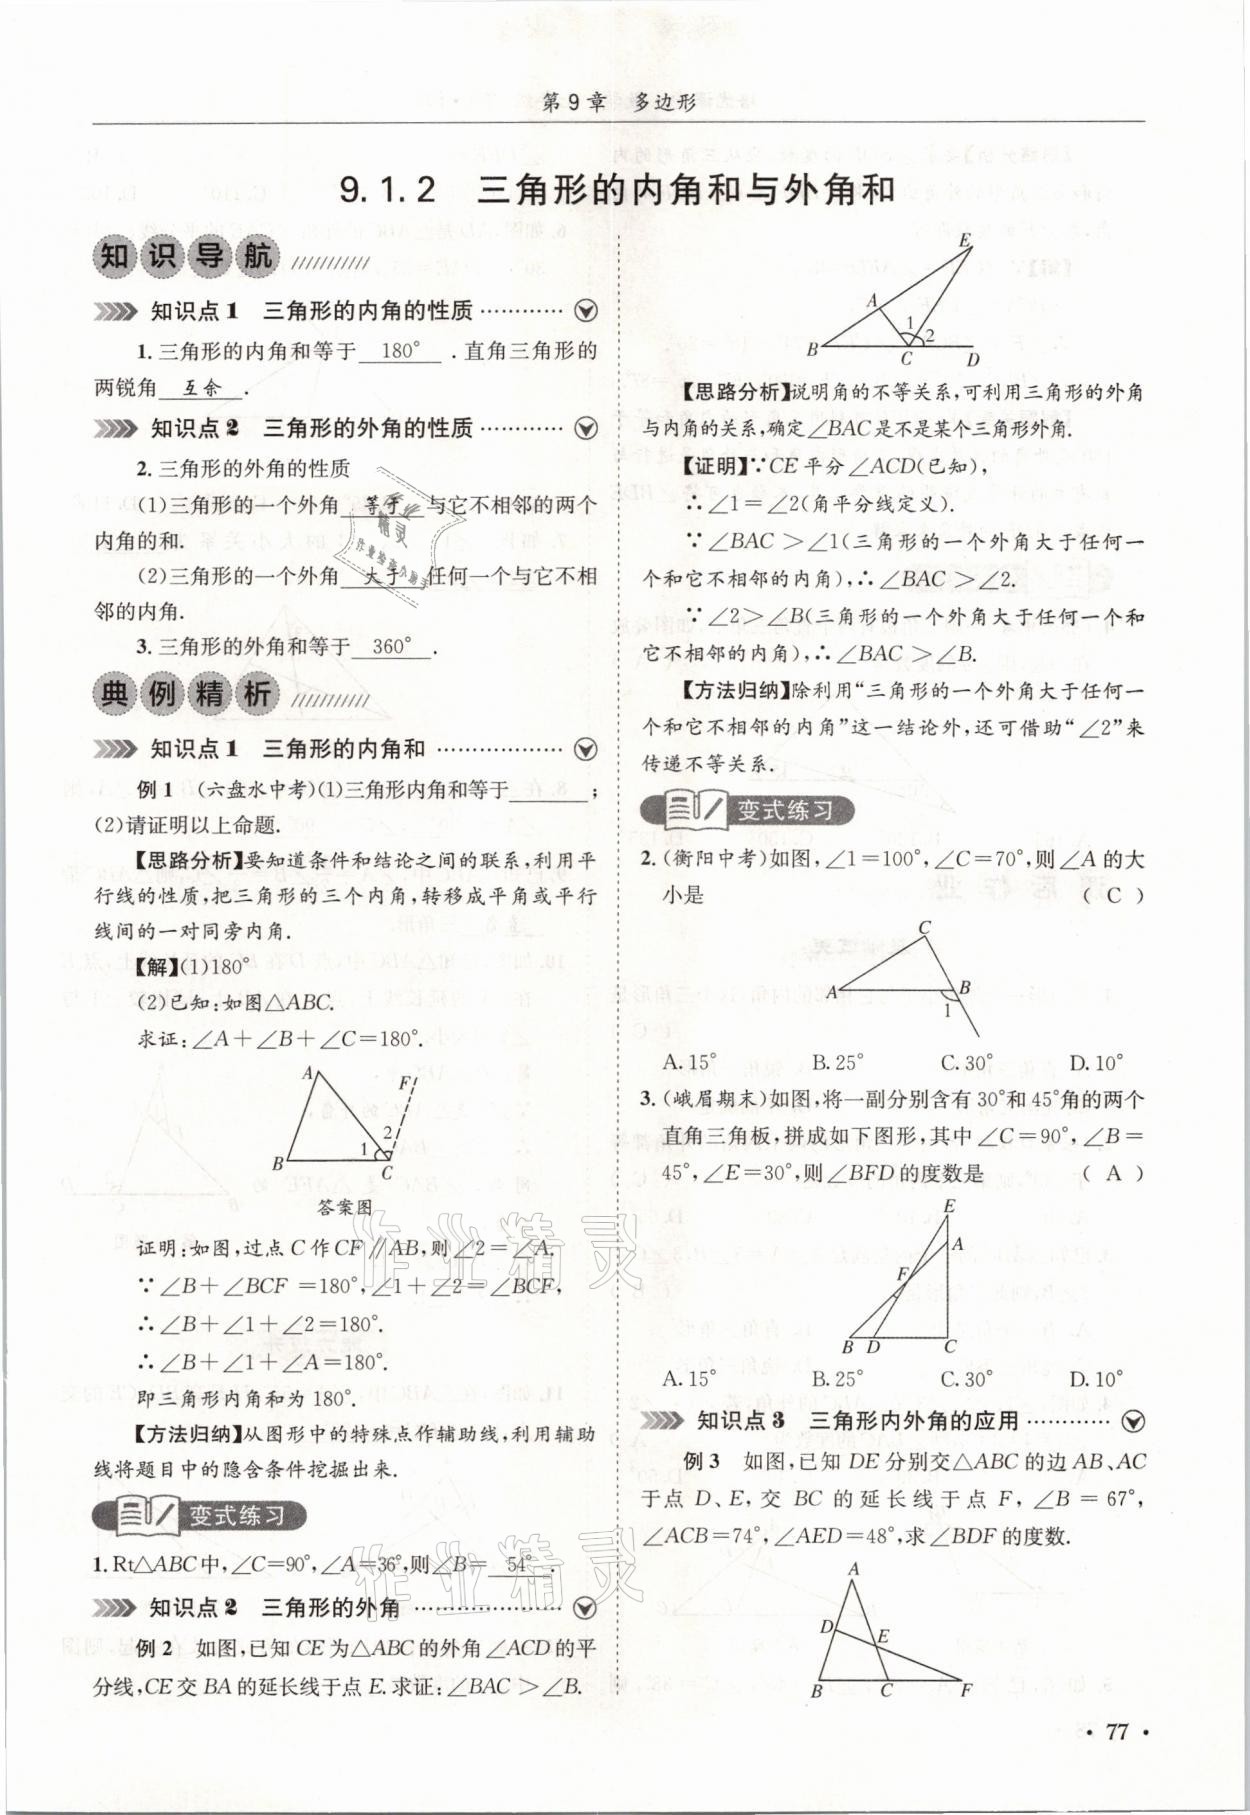 第9章　多边形
9.1.2　三角形的内角和与外角和
知识导航
知识点1　三角形的内角的性质
1.三角形的内角和等于 180° .直角三角形的
两锐角 互余 .
知识点2　三角形的外角的性质
2.三角形的外角的性质
(1)三角形的一个外角 等于 与它不相邻的两个
内角的和.
(2)三角形的一个外角 大于 任何一个与它不相
邻的内角.
3.三角形的外角和等于 360° .
典例精析
知识点1　三角形的内角和
例1　(六盘水中考)(1)三角形内角和等于______;
(2)请证明以上命题.
【思路分析】要知道条件和结论之间的联系,利用平
行线的性质,把三角形的三个内角,转移成平角或平行
线间的一对同旁内角.
【解】(1)180°
(2)已知:如图△ABC.
求证:∠A+∠B+∠C=180°.
A
F
2
1
B
C
答案图
证明:如图,过点C作CF∥AB,则∠2=∠A.
∵∠B+∠BCF=180°,∠1+∠2=∠BCF,
∴∠B+∠1+∠2=180°.
∴∠B+∠1+∠A=180°.
即三角形内角和为180°.
【方法归纳】从图形中的特殊点作辅助线,利用辅助
线将题目中的隐含条件挖掘出来.
变式练习
1.Rt△ABC中,∠C=90°,∠A=36°,则∠B= 54° .
知识点2　三角形的外角
例2　如图,已知CE为△ABC的外角∠ACD的平
分线,CE交BA的延长线于点E.求证:∠BAC>∠B.
E
A
1
2
B
C
D
【思路分析】说明角的不等关系,可利用三角形的外角
与内角的关系,确定∠BAC是不是某个三角形外角.
【证明】∵CE平分∠ACD(已知),
∴∠1=∠2(角平分线定义).
∵∠BAC>∠1(三角形的一个外角大于任何一
个和它不相邻的内角),∴∠BAC>∠2.
∵∠2>∠B(三角形的一个外角大于任何一个和
它不相邻的内角),∴∠BAC>∠B.
【方法归纳】除利用“三角形的一个外角大于任何一
个和它不相邻的内角”这一结论外,还可借助“∠2”来
传递不等关系.
变式练习
2.(衡阳中考)如图,∠1=100°,∠C=70°,则∠A的大
小是 ( C )
C
A
B
1
A.15°　B.25°　C.30°　D.10°
3.(峨眉期末)如图,将一副分别含有30°和45°角的两个
直角三角板,拼成如下图形,其中∠C=90°,∠B=
45°,∠E=30°,则∠BFD的度数是 ( A )
E
A
F
B
D
C
A.15°　B.25°　C.30°　D.10°
知识点3　三角形内外角的应用
例3　如图,已知DE分别交△ABC的边AB、AC
于点D、E,交BC的延长线于点F,∠B=67°,
∠ACB=74°,∠AED=48°,求∠BDF的度数.
A
D
E
B
C
F
·77·
作业精灵
作业精灵
作业
精灵